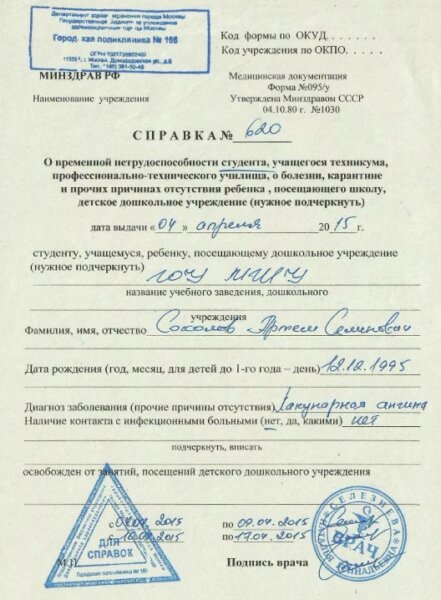 Департамент здравоохранения города Москвы
Государственное бюджетное учреждение
здравоохранения города Москвы
Город. кая поликлиника № 166
ОГРН 1027739922402
г. Москва, Домодедовская ул., д.9
Тел.: (495) 391-50-46
Код формы по ОКУД. . . . . . .
Код учреждения по ОКПО. . . . .
МИНЗДРАВ РФ
Медицинская документация
Форма №095/у
Наименование учреждения
Утверждена Минздравом СССР
04.10.80 г. №1030
СПРАВКА № 620
О временной нетрудоспособности студента, учащегося техникума,
профессионально-технического училища, о болезни, карантине
и прочих причинах отсутствия ребенка , посещающего школу,
детское дошкольное учреждение (нужное подчеркнуть)
дата выдачи «04» апреля 2015 г.
студенту, учащемуся, ребенку, посещающему дошкольное учреждение
(нужное подчеркнуть) ГОУ МГИУ
название учебного заведения, дошкольного
учреждения
Фамилия, имя, отчество Соколов Артем Семенович
Дата рождения (год, месяц, для детей до 1-го года – день) 12.12.1995
Диагноз заболевания (прочие причины отсутствия) Лакунарная ангина
Наличие контакта с инфекционными больными (нет, да, какими) нет
подчеркнуть, вписать
освобожден от занятий, посещений детского дошкольного учреждения
с 04.04.2015 по 09.04.2015
с 10.04.2015 по 17.04.2015
ДЛЯ
СПРАВОК
Городская поликлиника № 166
М.П.
Подпись врача
СЕЛЕЗНЕВА
ВРАЧ